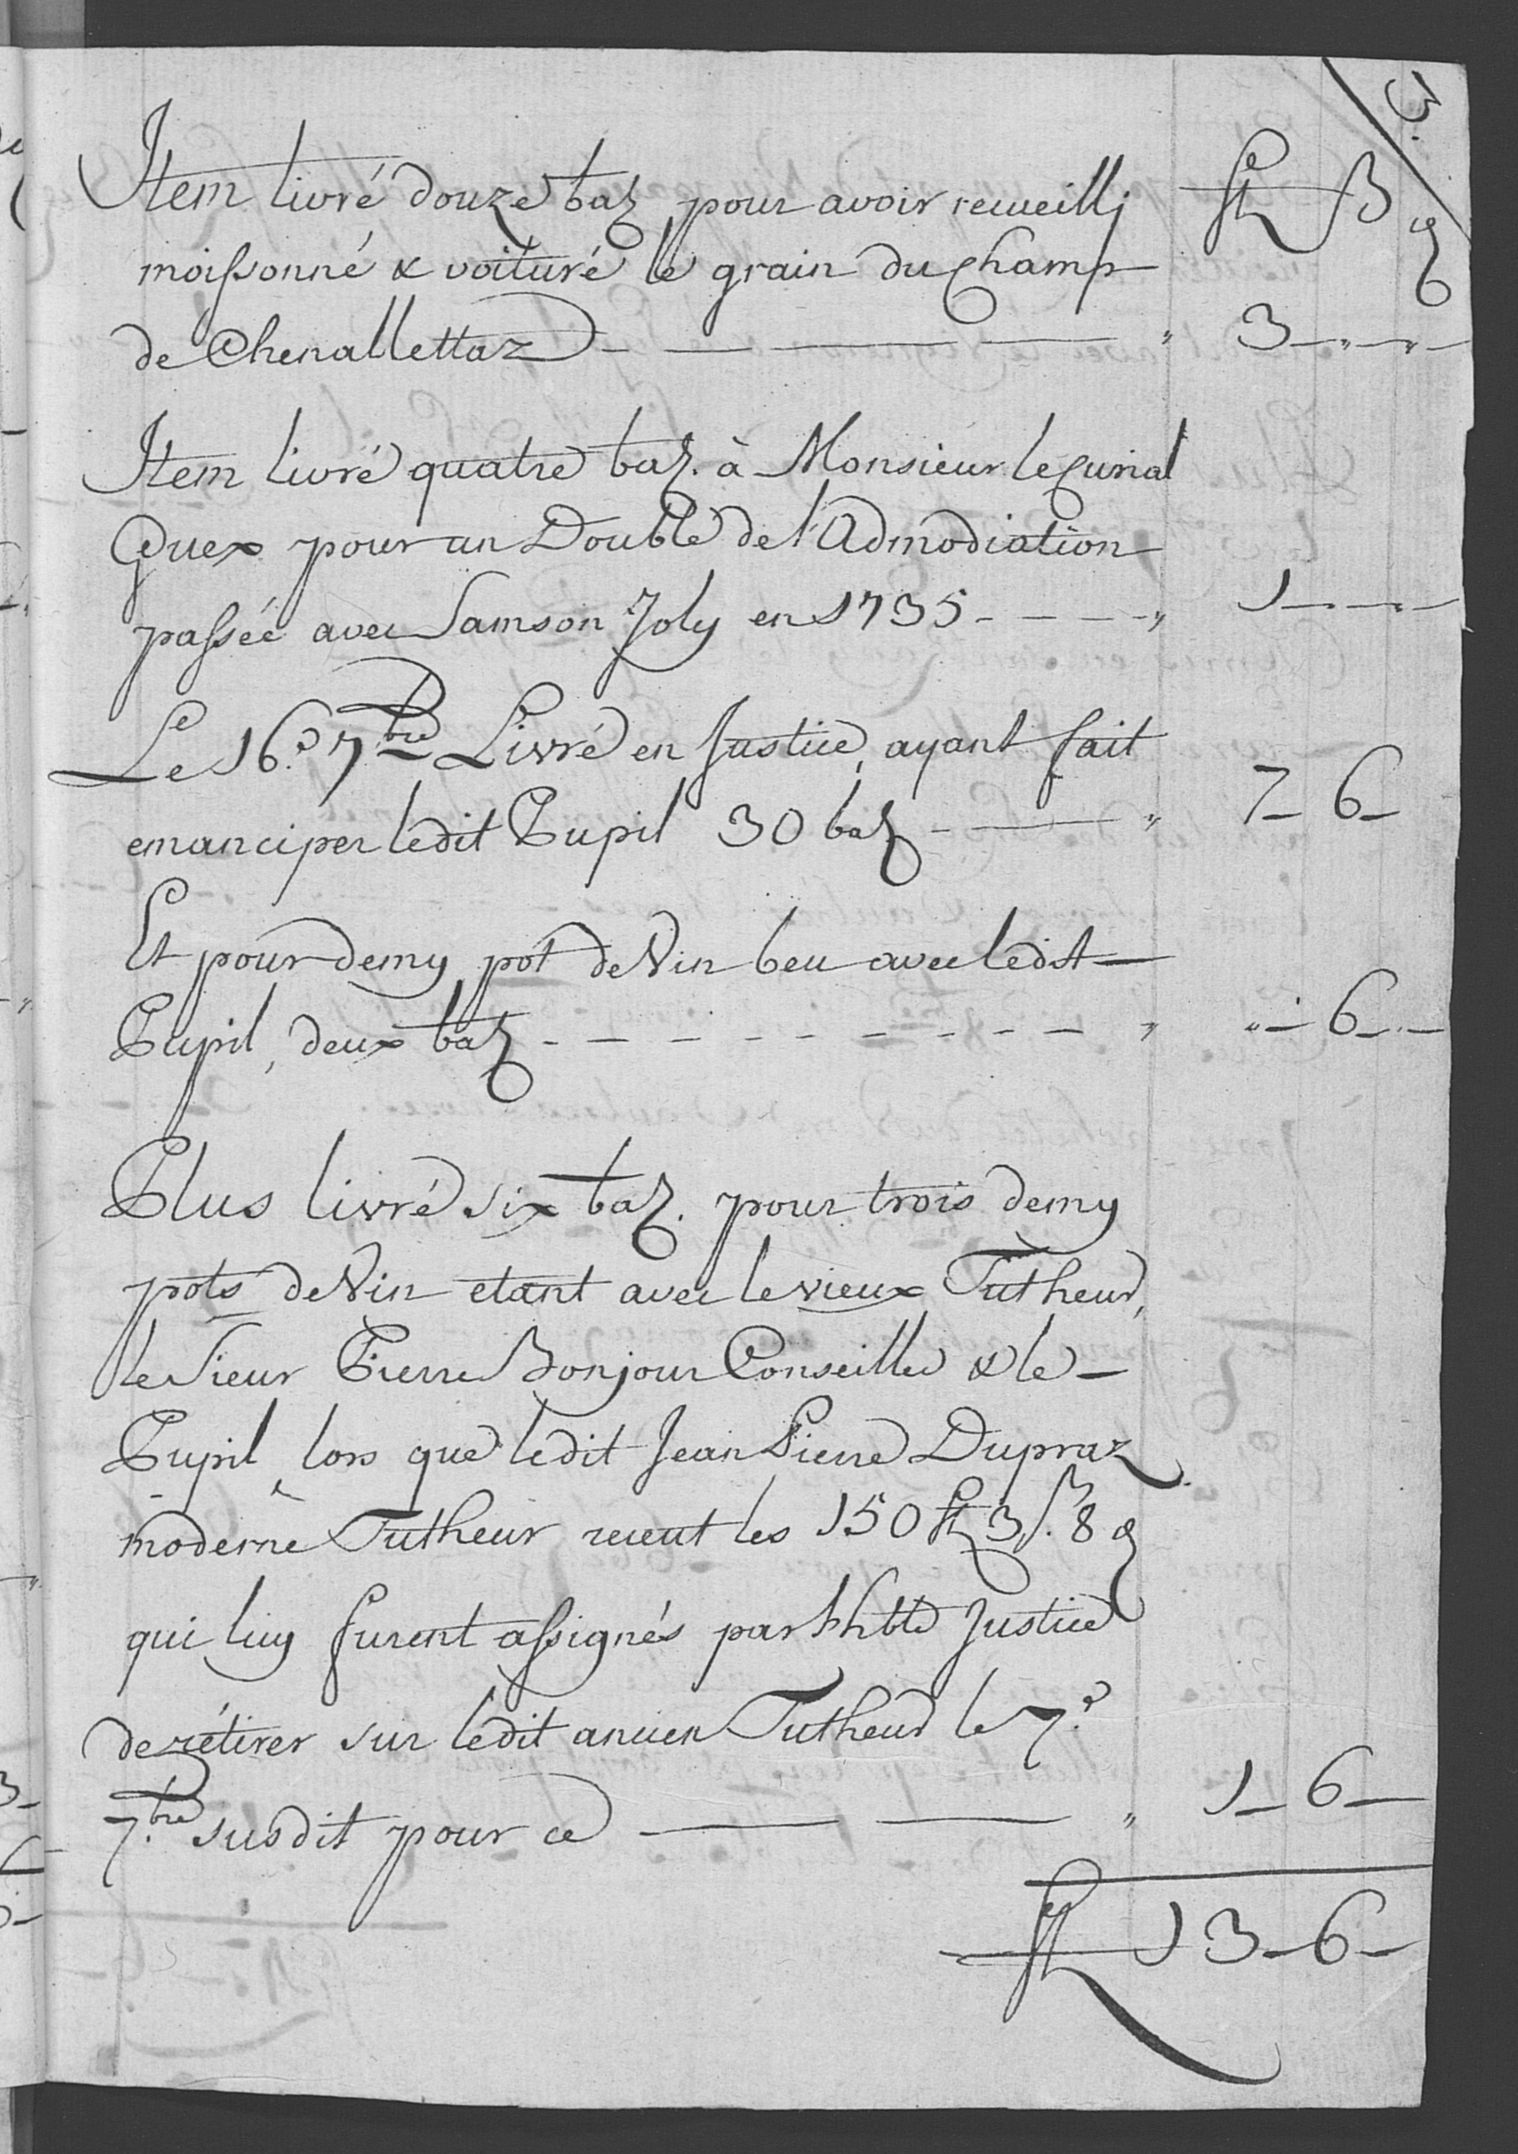 3.
fl ß ₰
Item livré douze batz pour avoir recueilli
moissonné & voituré le grain du Champ
de Chenallettaz — — — — " 3 — " — " —
Item livré quatre batz. à Monsieur le Curial
Guex pour un Double de l'Admodiation
passée avec Samson Joly en 1735 - - - - " 1 — " — " —
Le 16.e 7.bre Livré en Justice, ayant fait
emanciper ledit Pupil 30 batz - — " 7 — 6 —
Et pour demy pot de Vin beu avec ledit —
Pupil, deux batz - - - - - - - - - " " — 6 — " —
Plus livré six batz. pour trois demy
pots de Vin etant avec le vieux Tutheur,
le Sieur Pierre Bonjour Conseiller & le —
Pupil, lors que ledit Jean Pierre Dupraz
moderne Tutheur receut les 150 fl 3 ß. 8 ₰
qui luy furent assignés par l'hble Justice
de rétirer sur ledit ancien Tutheur le 7.e
7.bre susdit pour ce — — " 1 — 6 —
fl 13 — 6 —